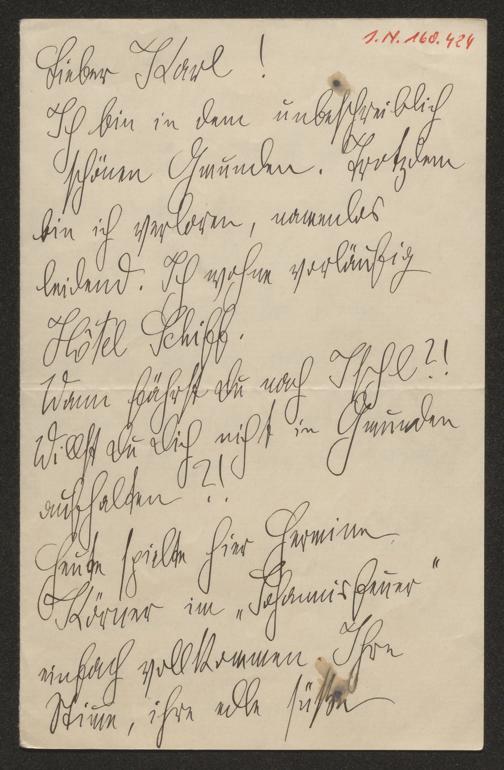 I.N. 160.424
Lieber Karl !
Ich bin in dem unbeschreiblich
schönen Gmunden. Trotzdem
bin ich verloren, namenlos
leidend. Ich wohne vorläufig
Hôtel Schiff.
Wann fährst Du nach Ischl ?!
Willst Du Dich nicht in Gmunden
aufhalten ?!
Heute spielte hier Hermine
Körner im „Johannisfeuer“
einfach vollkommen. Ihre
Stirne, ihre edle süsse